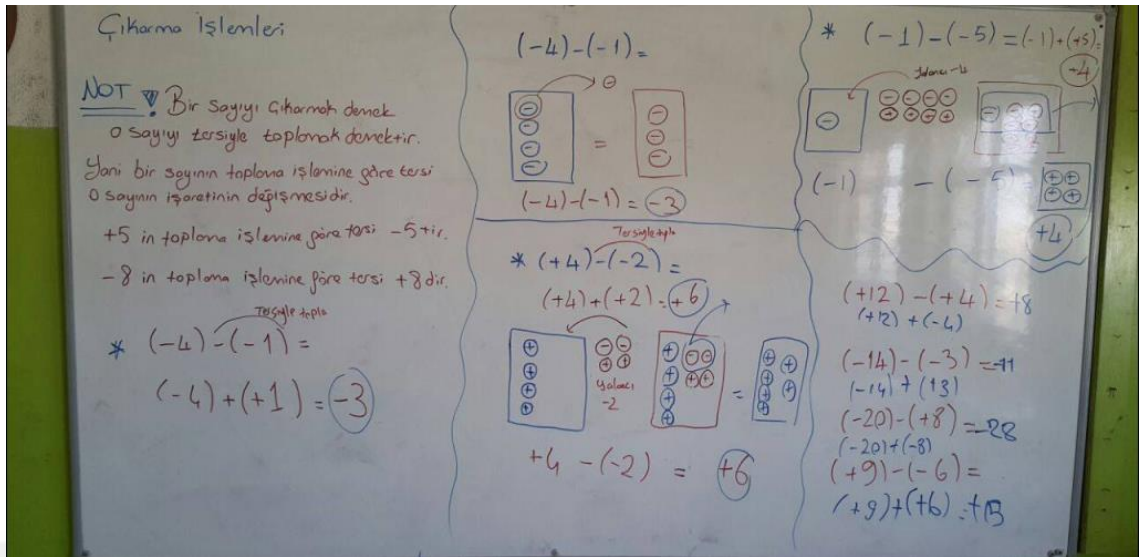 Çıkarma İşlemleri
NOT! Bir sayıyı çıkarmak demek
o sayıyı tersiyle toplamak demektir.
Yani bir sayının toplama işlemine göre tersi
o sayının işaretinin değişmesidir.
+5 in toplama işlemine göre tersi -5 tir.
-8 in toplama işlemine göre tersi +8 dir.
Tersiyle topla
* (-4)-(-1)=
(-4)+(+1)=-3
(-4)-(-1)=
⊖
⊖ ⊖
⊖ ⊖
⊖ = ⊖
⊖
(-4)-(-1)=-3
Tersiyle topla
* (+4)-(-2)=
(+4)+(+2)=+6
⊕ ⊖⊖ ⊕ ⊖⊖ ⊕ ⊕
⊕ ⊕⊕ ⊕ ⊕⊕ = ⊕ ⊕
⊕ Yalancı ⊕ ⊕
⊕ -2 ⊕ ⊕
+4 -(-2) = +6
* (-1)-(-5)=(-1)+(+5)=
+4
Yalancı -4
⊖ ⊖⊖⊖⊖
⊕⊕⊕⊕
(-1) -(-5)= ⊕⊕
⊕⊕
+4
(+12)-(+4)=+8
(+12)+(-4)
(-14)-(-3)=-11
(-14)+(+3)
(-20)-(+8)=-28
(-20)+(-8)
(+9)-(-6)=
(+9)+(+6)=+15